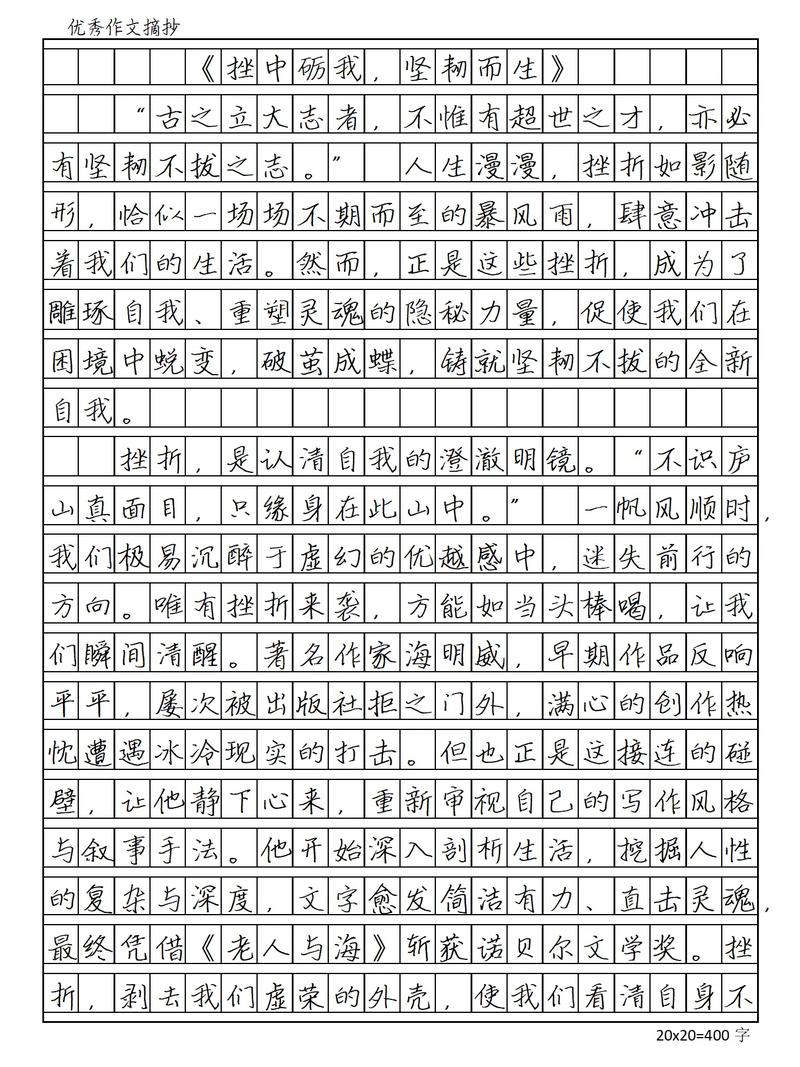 优秀作文摘抄
《挫中砺我，坚韧而生》
“古之立大志者，不惟有超世之才，亦必
有坚韧不拔之志。” 人生漫漫，挫折如影随
形，恰似一场场不期而至的暴风雨，肆意冲击
着我们的生活。然而，正是这些挫折，成为了
雕琢自我、重塑灵魂的隐秘力量，促使我们在
困境中蜕变，破茧成蝶，铸就坚韧不拔的全新
自我。
挫折，是认清自我的澄澈明镜。“不识庐
山真面目，只缘身在此山中。” 一帆风顺时，
我们极易沉醉于虚幻的优越感中，迷失前行的
方向。唯有挫折来袭，方能如当头棒喝，让我
们瞬间清醒。著名作家海明威，早期作品反响
平平，屡次被出版社拒之门外，满心的创作热
忱遭遇冰冷现实的打击。但也正是这接连的碰
壁，让他静下心来，重新审视自己的写作风格
与叙事手法。他开始深入剖析生活，挖掘人性
的复杂与深度，文字愈发简洁有力、直击灵魂，
最终凭借《老人与海》斩获诺贝尔文学奖。挫
折，剥去我们虚荣的外壳，使我们看清自身不
20x20=400 字